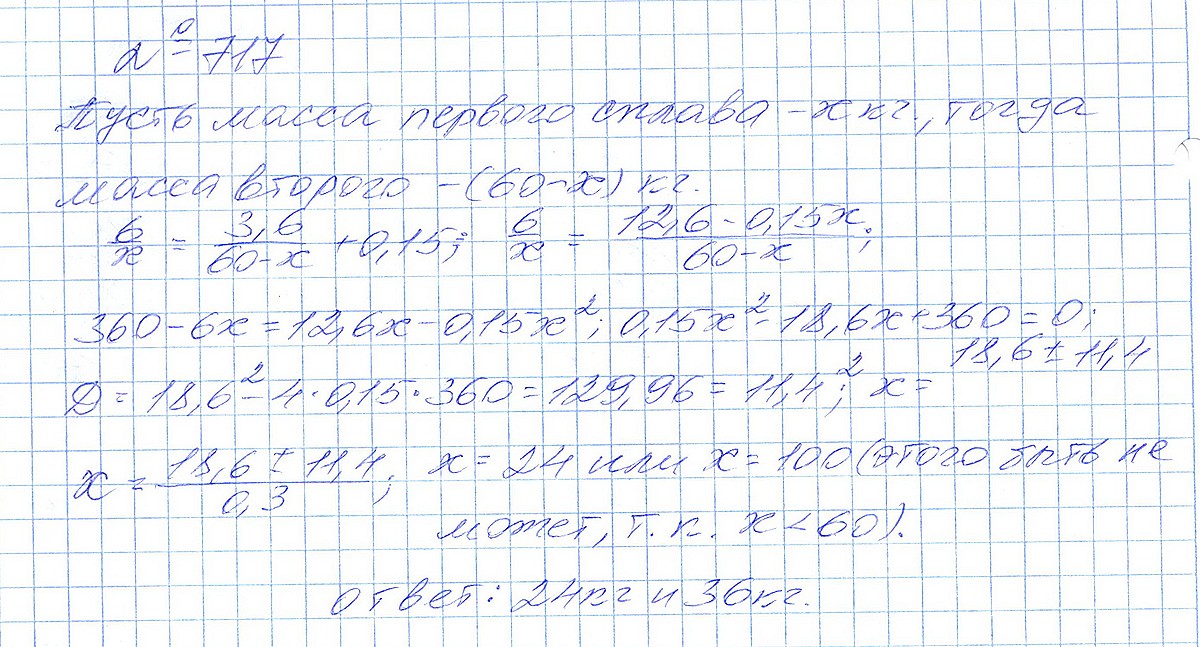 № 717
Пусть масса первого сплава - x кг., тогда
масса второго - (60-x) кг.
6/x = 3,6/(60-x) + 0,15; 6/x = (12,6-0,15x)/(60-x);
360-6x=12,6x-0,15x²; 0,15x²-18,6x+360=0;
D = 18,6²-4·0,15·360=129,96=11,4²; x= 18,6±11,4
x = (18,6±11,4)/0,3; x=24 или x=100 (этого быть не
может, т.к. x<60).
ответ: 24кг и 36кг.